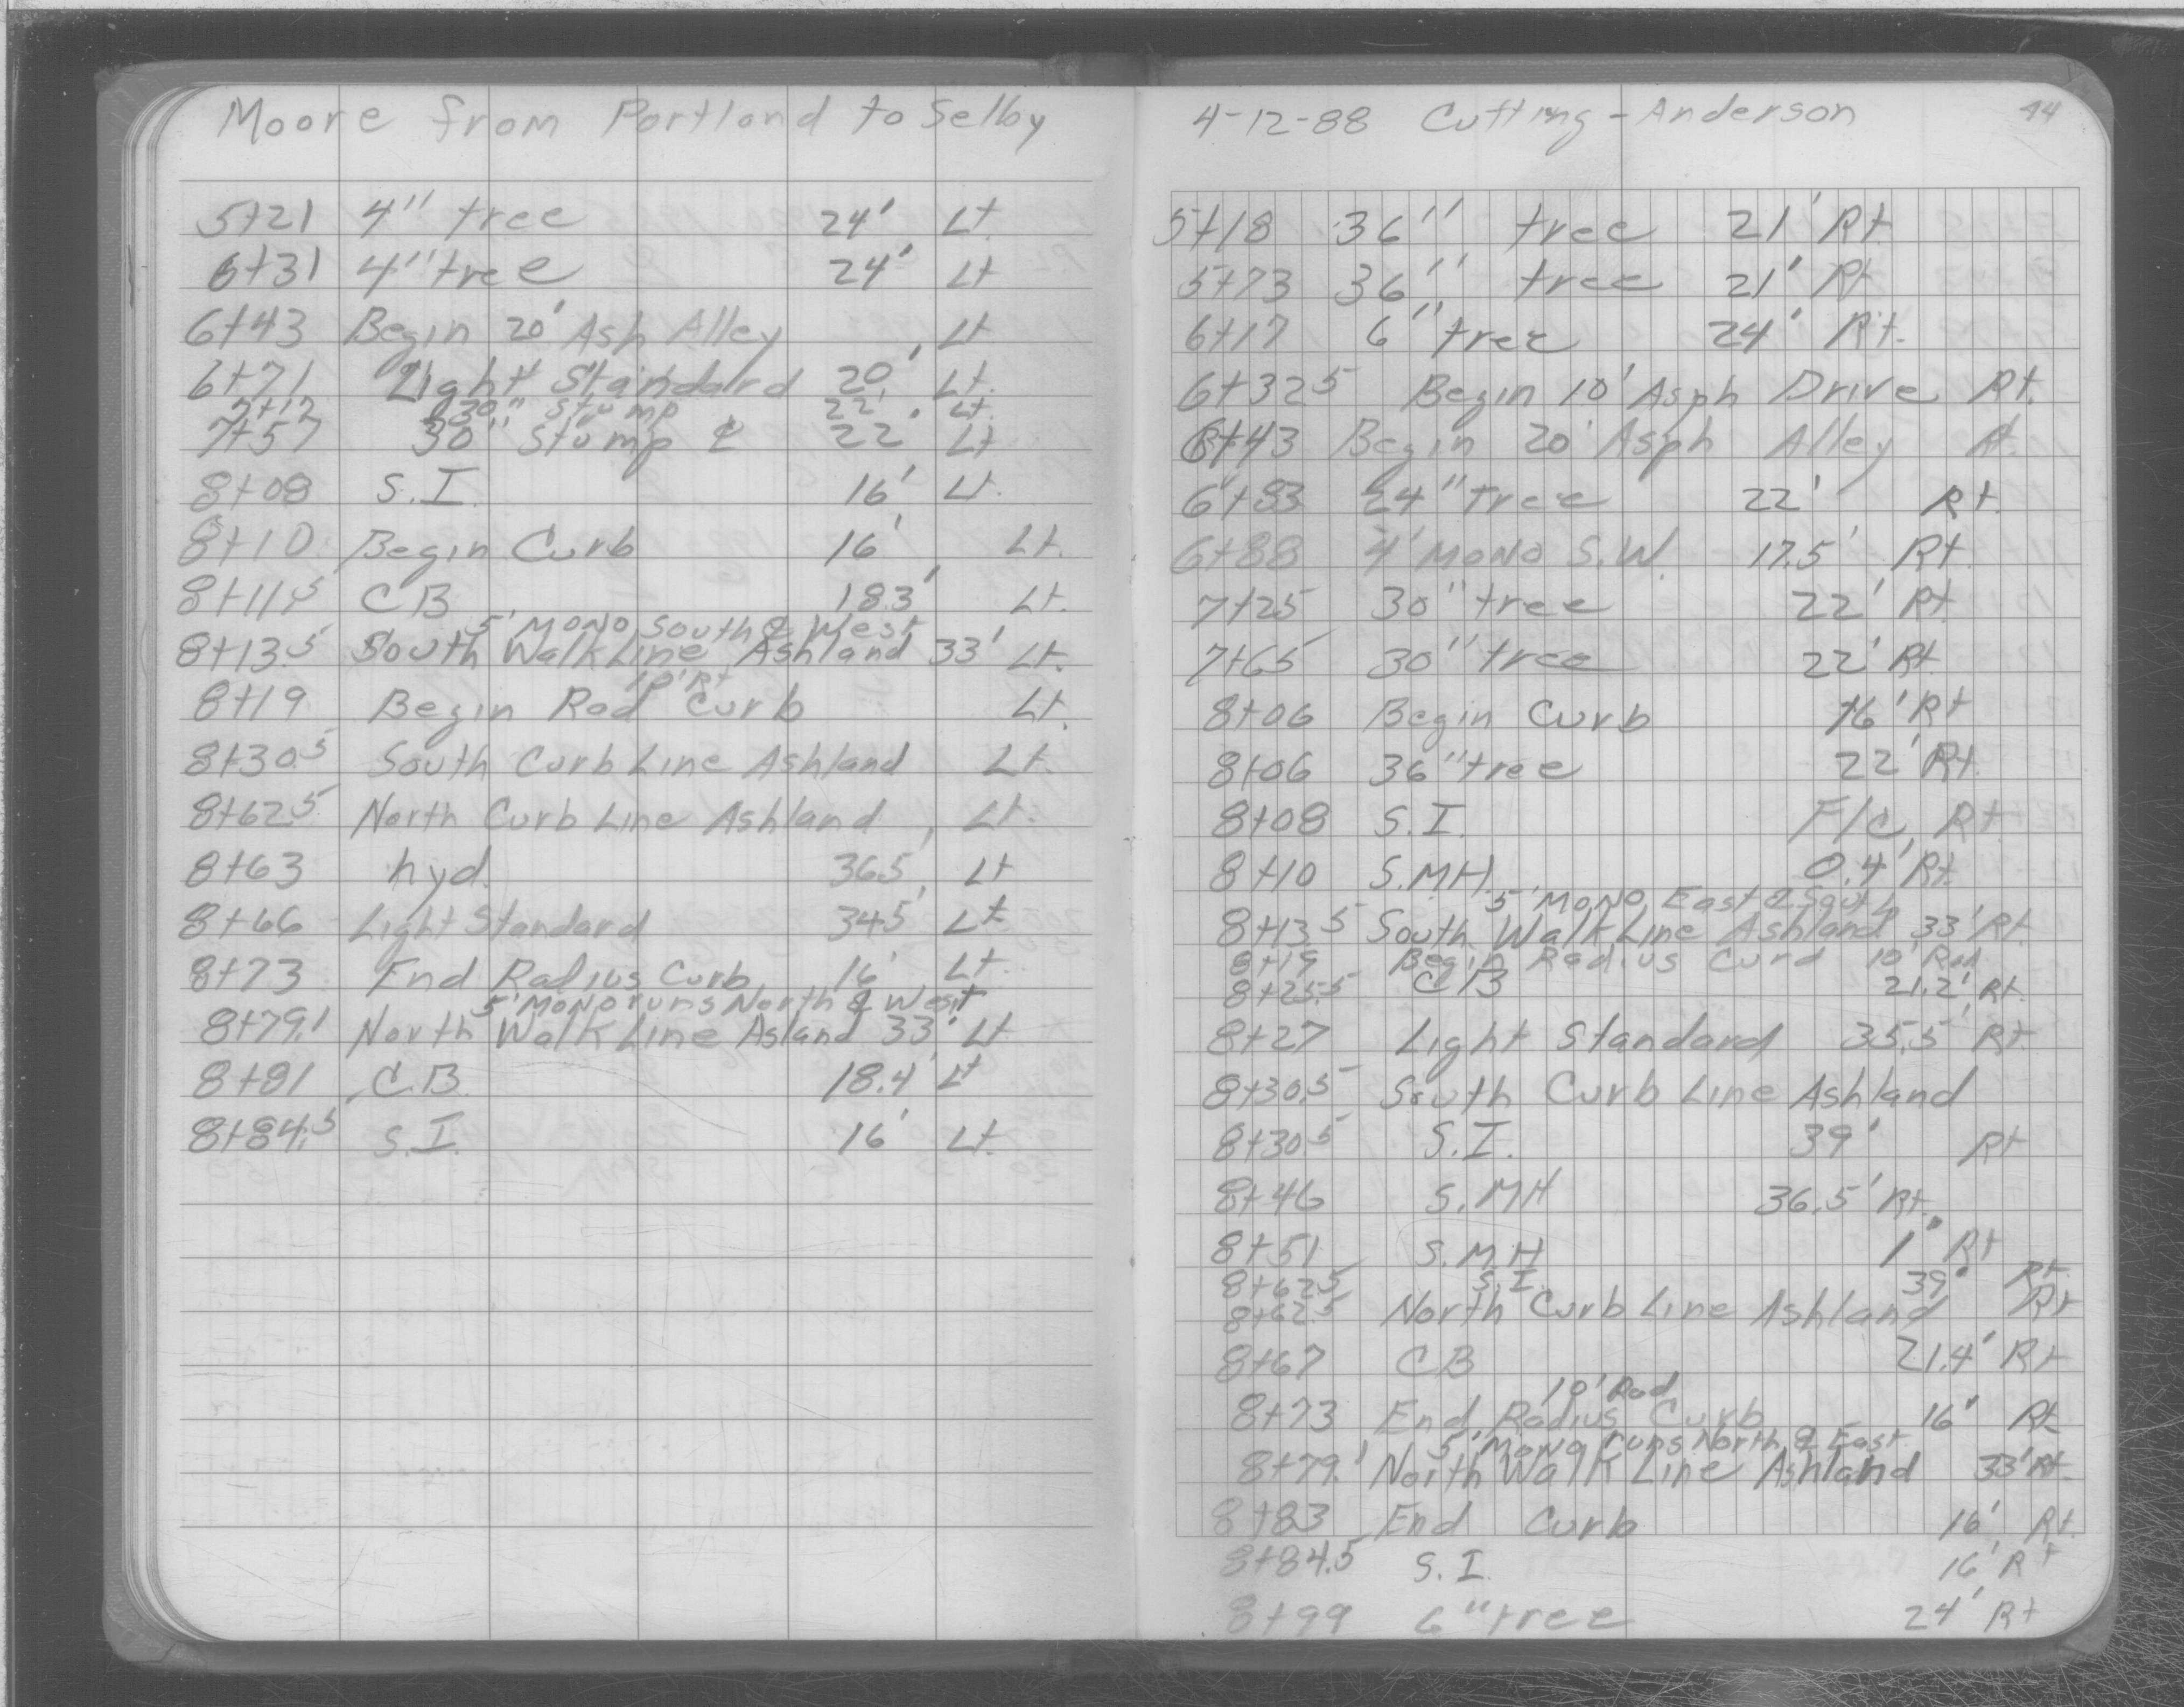 Moore from Portland to Selby
5+21 4" tree 24' Lt.
6+31 4" tree 24' Lt
6+43 Begin 20' Ash Alley Lt
6+71 Light Standard 20' Lt.
7+17 30" Stump 22' Lt.
7+57 30" Stump ¢ 22' Lt
8+08 S.I. 16' Lt.
8+10 Begin Curb 16' Lt.
8+11.5 CB 18.3' Lt.
5' MONO South & West
8+13.5 South Walk Line Ashland 33' Lt.
10' Rt
8+19 Begin Rad Curb Lt.
8+30.5 South Curb Line Ashland Lt.
8+62.5 North Curb Line Ashland, Lt.
8+63 hyd. 36.5' Lt
8+66 Light Standard 34.5' Lt.
8+73 End Radius Curb 16' Lt.
5' MONO runs North & West
8+79.1 North Walk Line Asland 33' Lt
8+81 C.B. 18.4' Lt
8+84.5 S.I. 16' Lt.
4-12-88 Cutting - Anderson 44
5+18 36" tree 21' Rt
5+73 36" tree 21' Rt
6+17 6" tree 24' Rt.
6+32.5 Begin 10' Asph Drive Rt.
6+43 Begin 20' Asph Alley Rt.
6+83 24" tree 22' Rt.
6+88 4' MONO S.W. 17.5' Rt.
7+25 30" tree 22' Rt.
7+65 30" tree 22' Rt.
8+06 Begin Curb 16' Rt
8+06 36" tree 22' Rt.
8+08 S.I. F/c, Rt
8+10 S.MH. 0.4' Rt.
5' MONO East & South
8+13.5 South Walk Line Ashland 33' Rt.
8+19 Begin Radius Curd 10' Rad
8+25.5 CB 21.2' Rt.
8+27 Light Standard 35.5' Rt
8+30.5 South Curb Line Ashland
8+30.5 S.I. 39' Rt
8+46 S.MH 36.5' Rt.
8+51 S.M.H 1' Rt
8+62.5 S.I. 39' Rt.
8+62.5 North Curb Line Ashland Rt
8+67 CB 21.4' Rt
10' Rad
8+73 End Radius Curb 16' Rt
5' MONO runs North & East
8+79.1 North Walk Line Ashland 33' Rt.
8+83 End Curb 16' Rt.
8+84.5 S.I. 16' Rt
8+99 6" tree 24' Rt